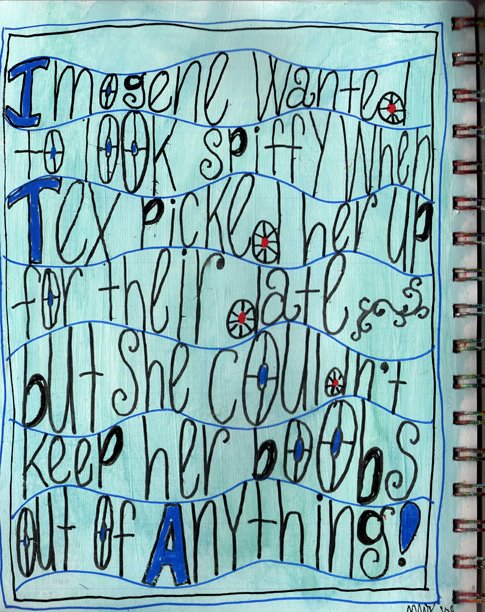 Imogene wanted
to look spiffy when
Tex picked her up
for their date
but she couldn't
keep her boobs
out of Anything!